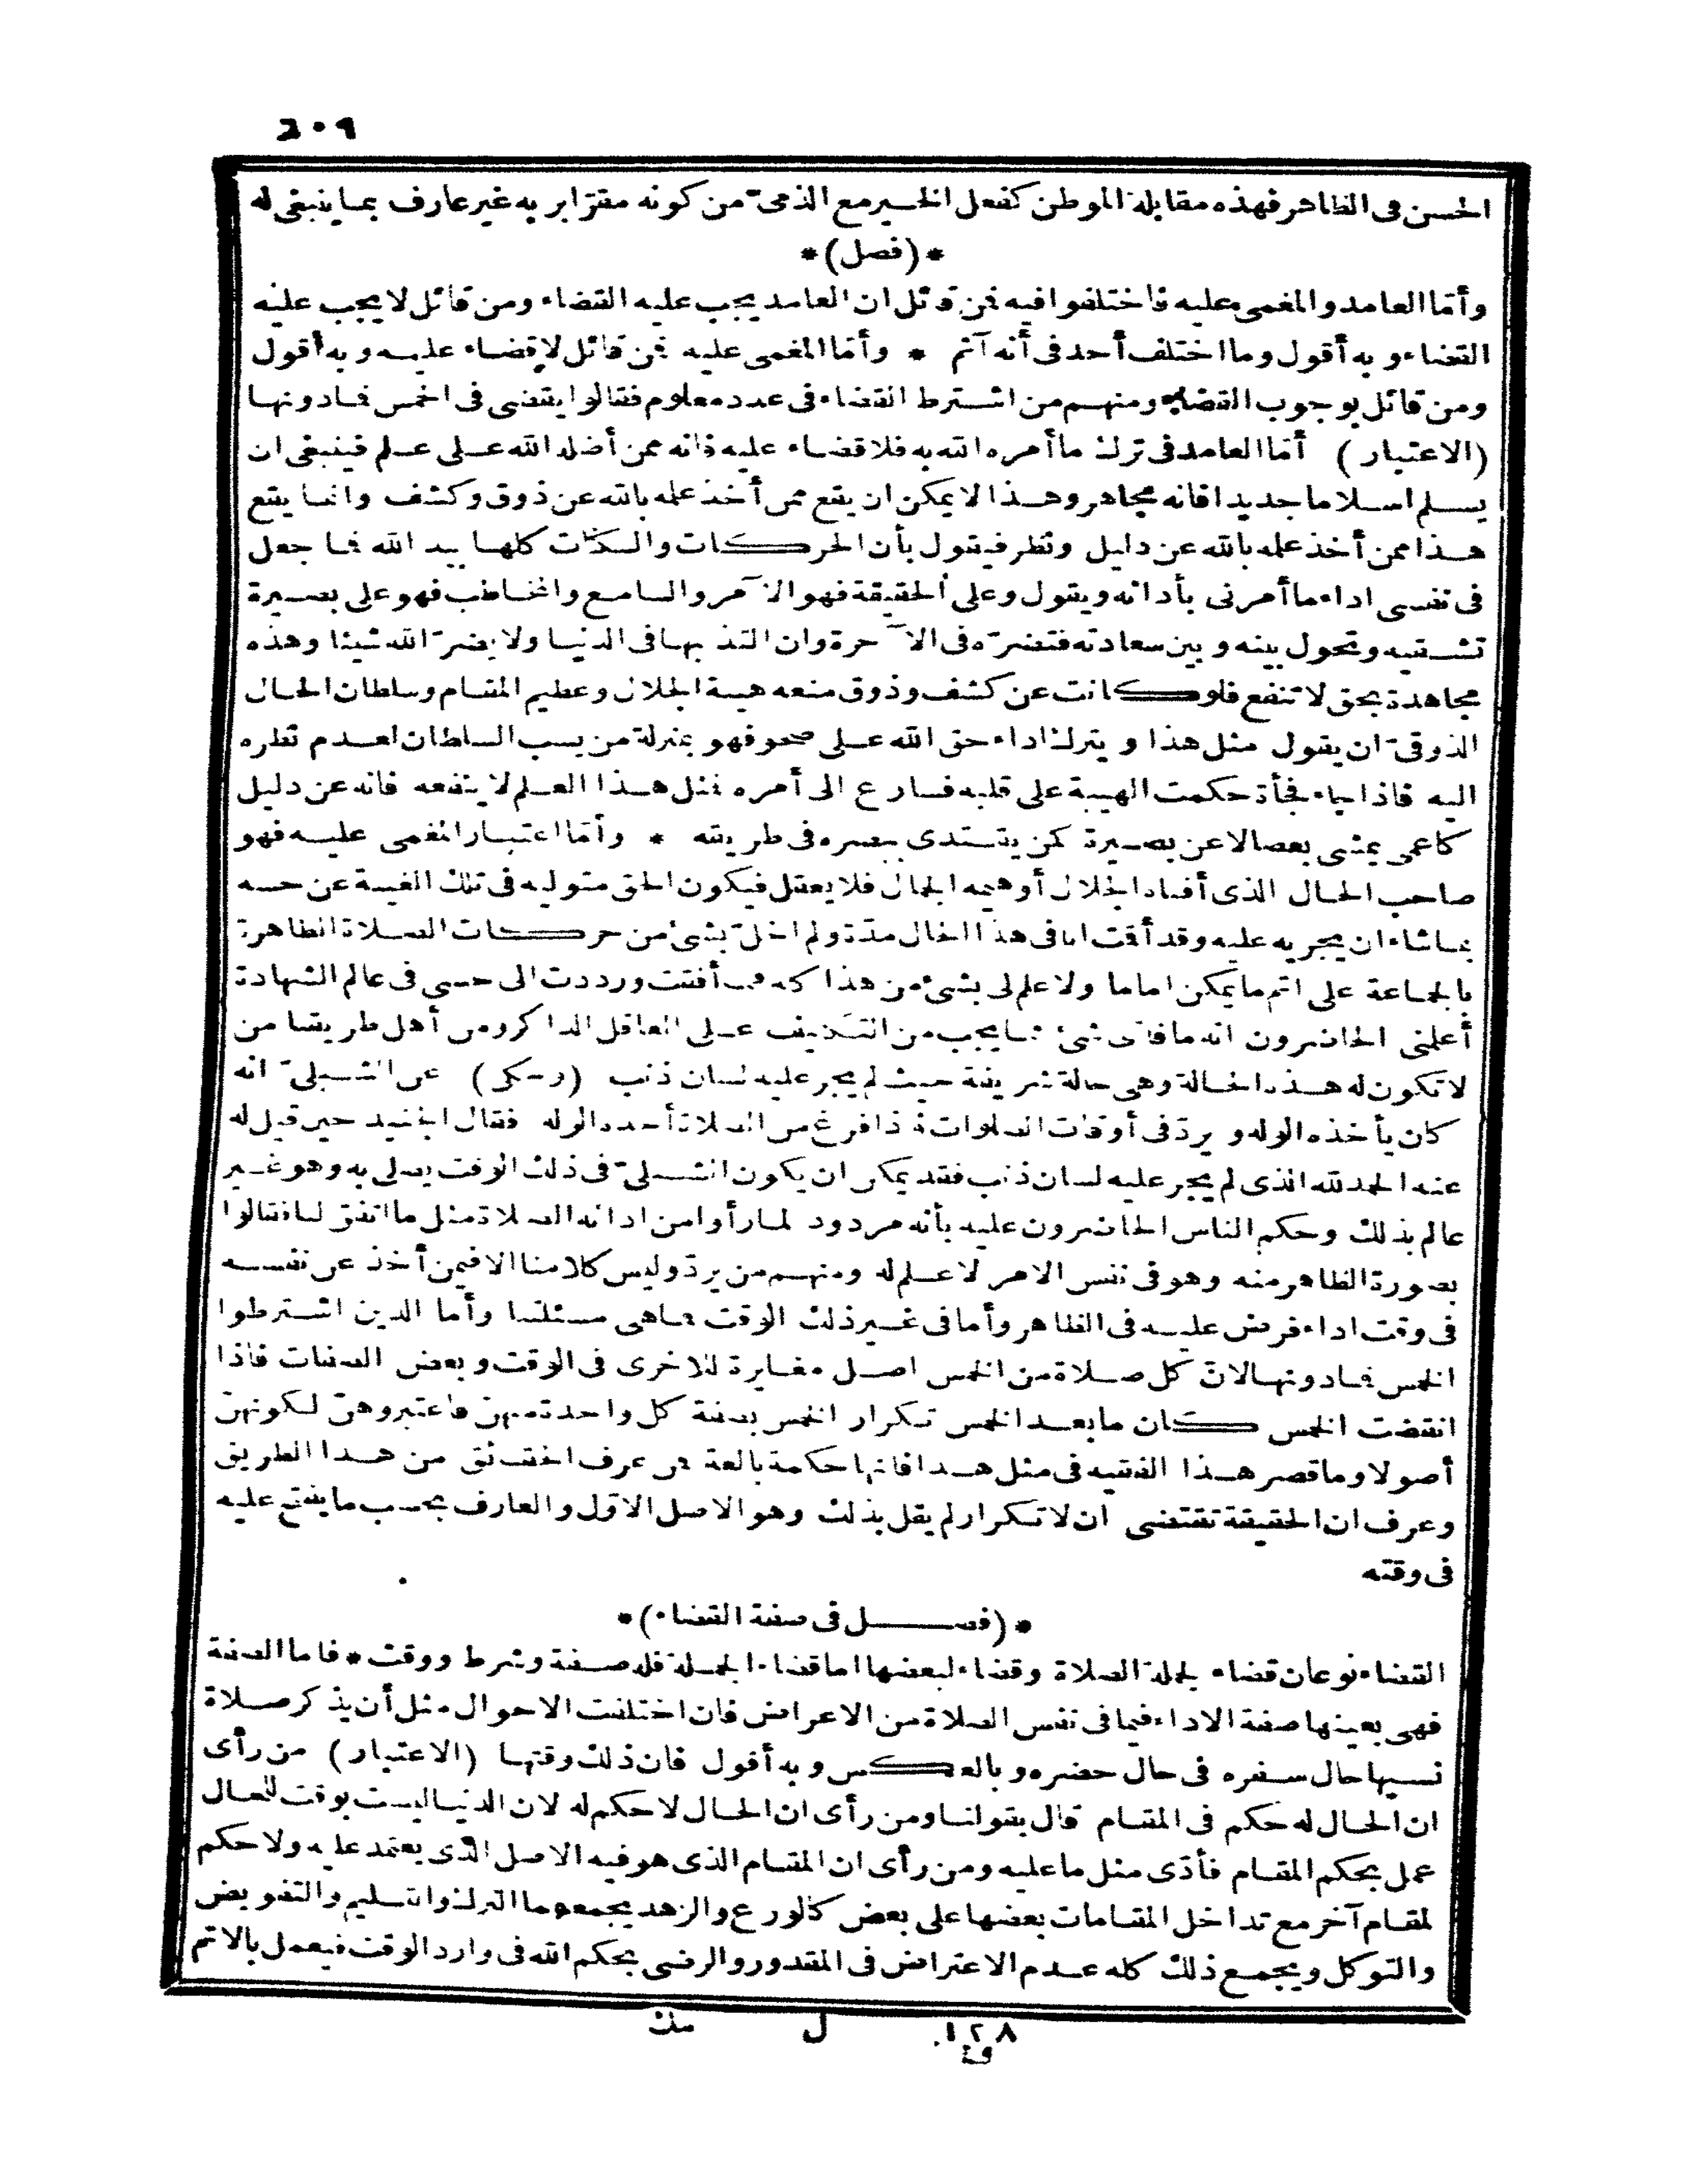 ٦٠٩
الحسن فى الظاهر فهذه مقابلة الموطن كفعل الخير مع الذمىّ من كونه مقرّا بربه غير عارف بما ينبغى له
*(فصل)*
وأمّا العامد والمغمى عليه فاختلفوا فيه فمن قائل ان العامد يجب عليه القضاء ومن قائل لا يجب عليه
القضاء وبه أقول وما اختلف أحد فى أنه آثم * وأمّا المغمى عليه فمن قائل لا قضاء عليه وبه أقول
ومن قائل بوجوب القضاء ومنهم من اشترط القضاء فى عدد معلوم فقالوا يقضى فى الخمس فمادونها
(الاعتبار) أمّا العامد فى ترك ما أمره الله به فلا قضاء عليه فانه ممن أضله الله على علم فينبغى ان
يسلم اسلاما جديدا فانه مجاهر وهذا لا يمكن ان يقع ممن أخذ علمه بالله عن ذوق وكشف وانما يقع
هذا ممن أخذ علمه بالله عن دليل ونظر فيقول بأن الحركات والسكنات كلها بيد الله فما جعل
فى نفسى اداء ما أمرنى بأدائه ويقول وعلى الحقيقة فهو الآمر والسامع والمخاطب فهو على بصيرة
تشقيه وتحول بينه وبين سعادته فتضرّه فى الآخرة وان التذ بها فى الدنيا ولا يضرّ الله شيئا وهذه
مجاهدة بحق لا تنفع فلو كانت عن كشف وذوق منعه هيبة الجلال وعظيم المقام وسلطان الحال
الذوقىّ ان يقول مثل هذا ويترك اداء حق الله على صحو فهو بمنزلة من يسب السلطان لعدم نظره
اليه فاذا جاء فجأة حكمت الهيبة على قلبه فسارع الى أمره فمثل هذا العلم لا ينفعه فانه عن دليل
كاعمى يمشى بعصا لا عن بصيرة كمن يقتدى ببصره فى طريقه * وأمّا اعتبار المغمى عليه فهو
صاحب الحال الذى أفناه الجلال أو هيمه الجمال فلا يعقل فيكون الحق متوليه فى تلك الغيبة عن حسه
بما شاء ان يجريه عليه وقد أقت انا فى هذا الحال مدّة ولم اخلّ بشئ من حركات الصلاة الظاهرة
بالجماعة على اتم ما يمكن اماما ولا علم لى بشئ من هذا كله فلما أفقت ورددت الى حسى فى عالم الشهادة
أعلمنى الحاضرون انه ما فاتنى شئ مما يجب من التكليف على العاقل الذاكر ومن أهل طريقنا من
لا تكون له هذه الحالة وهى حالة شريفة حيث لم يجر عليه لسان ذنب (وحكى) عن الشبلىّ انه
كان يأخذه الوله ويردّ فى أوقات الصلوات فاذا فرغ من الصلاة أخذه الوله فقال الجنيد حين قيل له
عنه الحمد لله الذى لم يجر عليه لسان ذنب فقد يمكن ان يكون الشبلىّ فى ذلك الوقت يصلى به وهو غير
عالم بذلك وحكم الناس الحاضرون عليه بأنه مردود لما رأوا من ادائه الصلاة مثل ما اتفق لنا فقالوا
بصورة الظاهر منه وهو فى نفس الامر لا علم له ومنهم من يردّ وليس كلامنا الا فيمن أخذ عن نفسه
فى وقت اداء فرض عليه فى الظاهر وأما فى غير ذلك الوقت فما هى مسئلتنا وأما الذين اشترطوا
الخمس فمادونها لانّ كل صلاة من الخمس اصل مغايرة للاخرى فى الوقت وبعض الصفات فاذا
انقضت الخمس كان ما بعد الخمس تكرار الخمس بصفة كل واحدة منهن فاعتبروهن لكونهن
أصولا وما قصر هذا الفقيه فى مثل هذا فانها حكمة بالغة فمن عرف الحقائق من هذا الطريق
وعرف ان الحقيقة تقتضى ان لا تكرار لم يقل بذلك وهو الاصل الاوّل والعارف بحسب ما يفتح عليه
فى وقته
*(فصل فى صفة القضاء)*
القضاء نوعان قضاء لجملة الصلاة وقضاء لبعضها اما قضاء الجملة فله صفة وشرط ووقت * فاما الصفة
فهى بعينها صفة الاداء فيما فى نفس الصلاة من الاعراض فان اختلفت الاحوال مثل أن يذكر صلاة
نسيها حال سفره فى حال حضره وبالعكس وبه أقول فان ذلك وقتها (الاعتبار) من رأى
ان الحال له حكم فى المقام قال بقولنا ومن رأى ان الحال لا حكم له لان الدنيا ليست بوقت للحال
عمل بحكم المقام فأدّى مثل ما عليه ومن رأى ان المقام الذى هو فيه الاصل الذى يعتمد عليه ولا حكم
لمقام آخر مع تداخل المقامات بعضها على بعض كالورع والزهد يجمعهما الترك والتسليم والتفويض
والتوكل ويجمع ذلك كله عدم الاعتراض فى المقدور والرضى بحكم الله فى وارد الوقت فيعمل بالاتم
١٢٨ ل مك